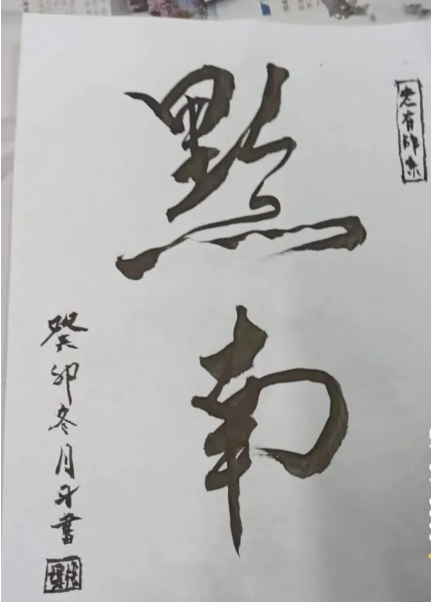 老有所乐
黔南
癸卯冬月 書